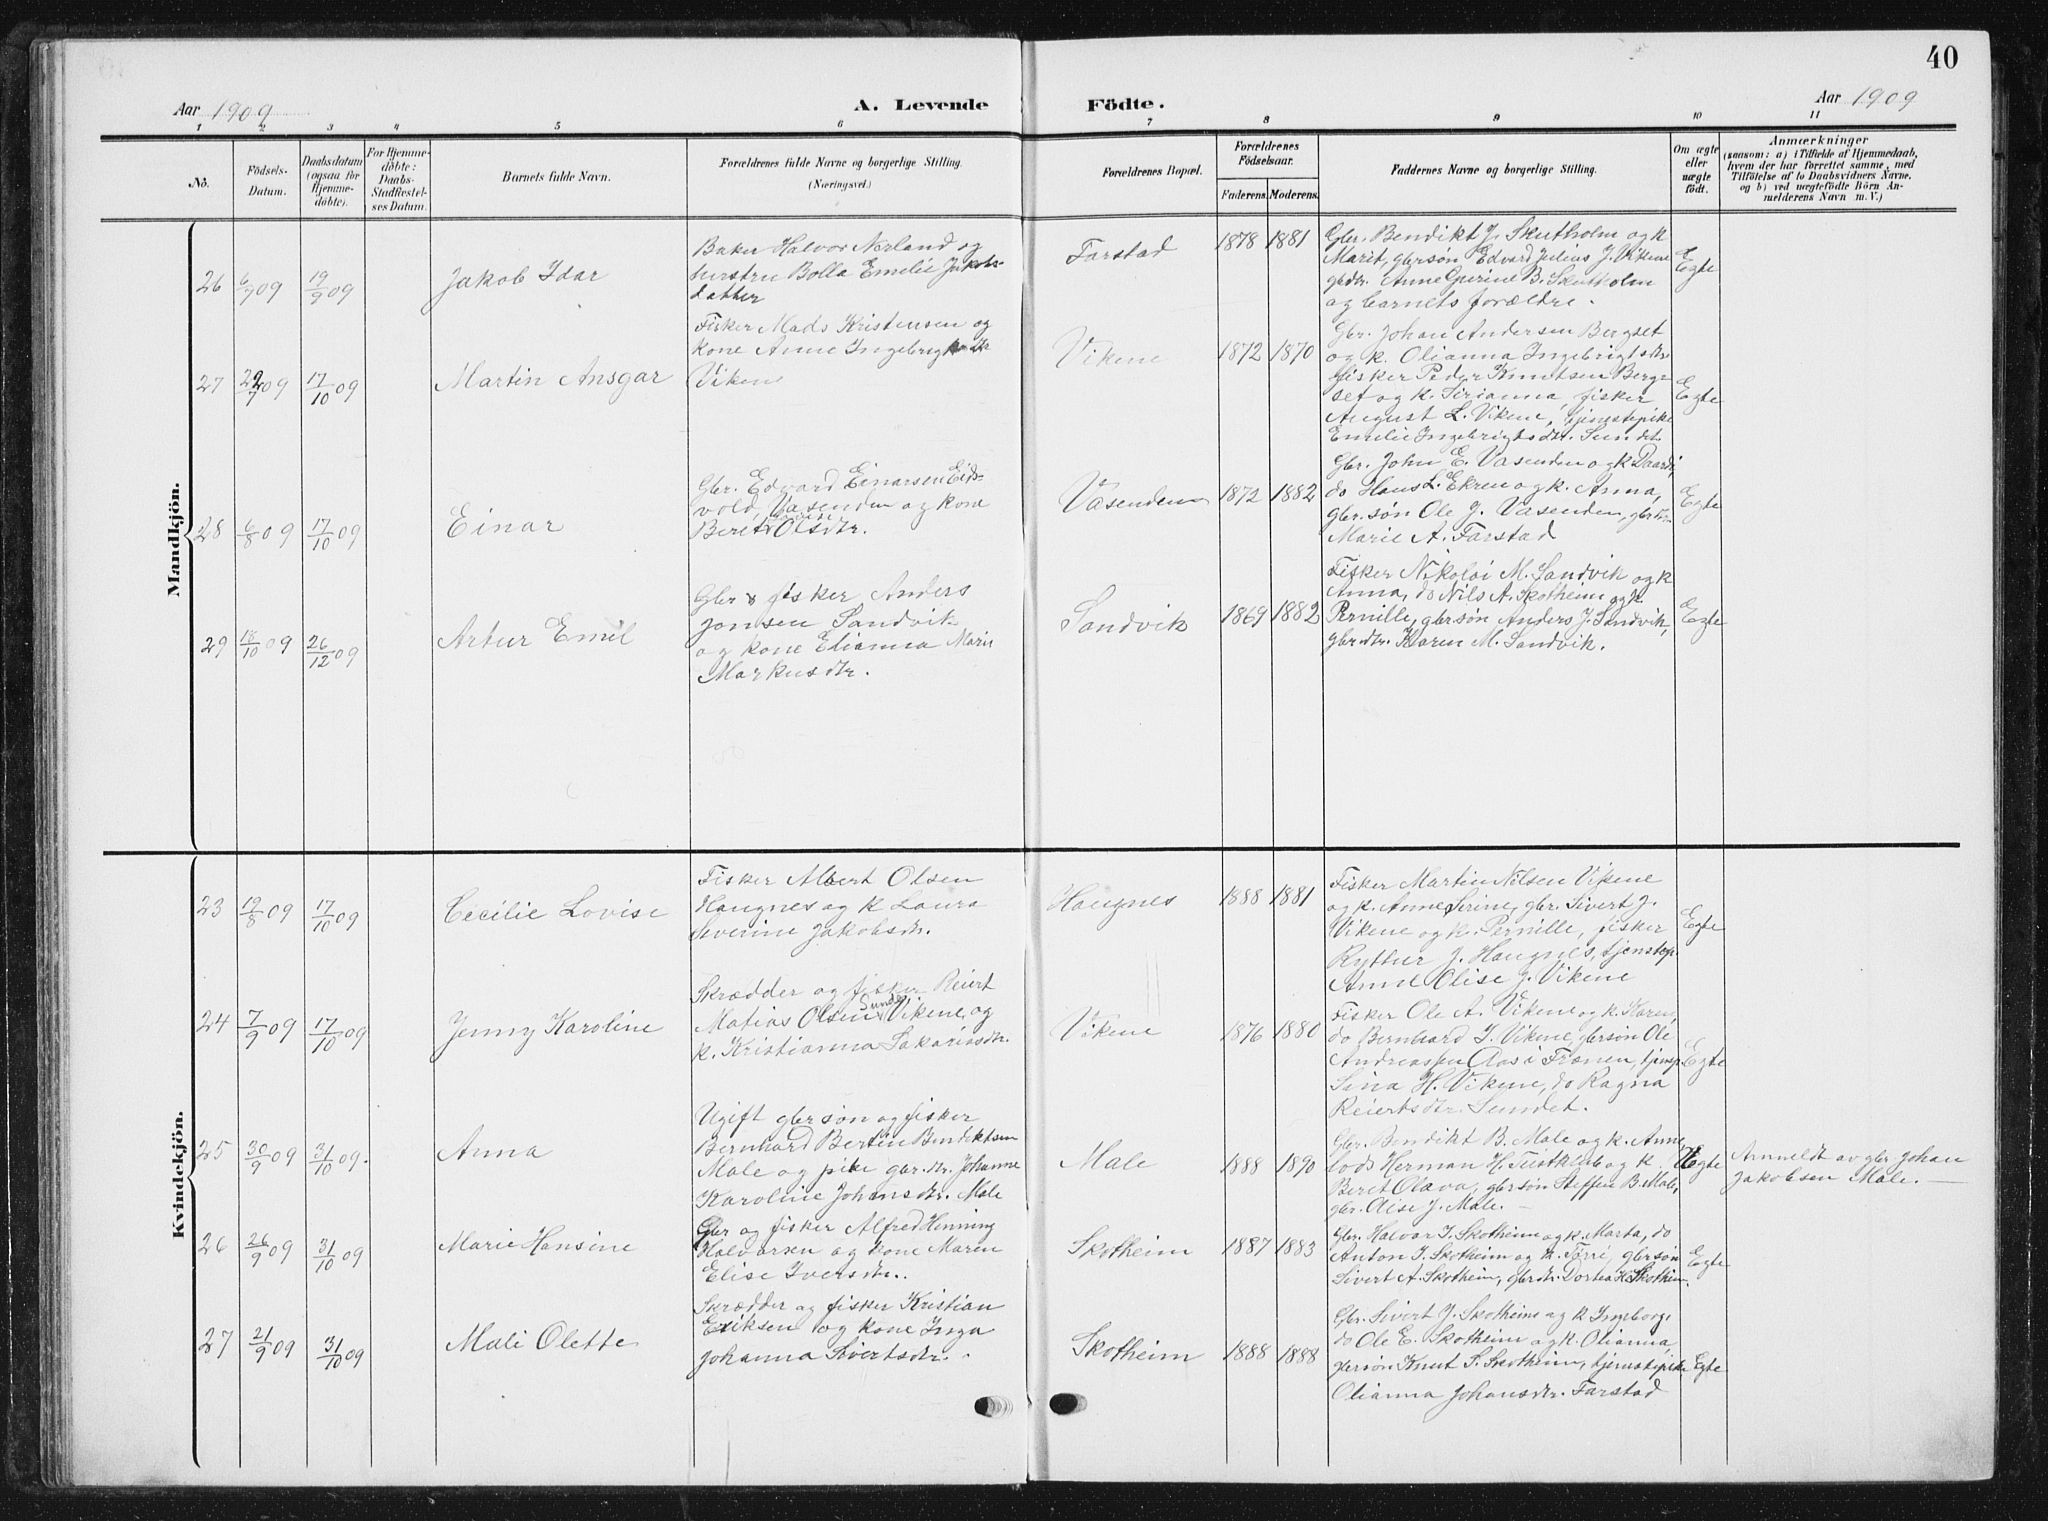 40
Aar 1909
A. Levende
Födte.
Aar 1909
1 2 3 4 5 6 7 8 9 10 11
No.
Födsels-
Datum.
Daabsdatum
(ogsaa for
Hjemme-
döbte).
For Hjemme-
döbte:
Daabs-
Stadfæstel-
ses Datum.
Barnets fulde Navn.
Forældrenes fulde Navne og borgerlige Stilling.
(Næringsvei.)
Forældrenes Bopæl.
Forældrenes
Födselsaar.
Faderens. Moderens.
Faddernes Navne og borgerlige Stilling.
Om ægte
eller
uægte
födt.
Anmærkninger
(saasom: a) i Tilfælde af Hjemmedaab,
hvem der har forrettet samme, med
Tilföielse af to Daabsvidners Navne,
og b) ved uægtefödte Börn An-
melderens Navn m. V.)
Mandkjön.
26 6/7 09 19/9 09 Jakob Idar
Baker Halvor Nerland og
hustru Bolla Emelie Jakobs-
datter
Farstad 1878 1881
Gbr. Bendikt J. Skutholm og k
Marit, gbrsøn Edvard Julius J. Vikene
gbrdtr. Anne Gurine B. Skutholm
og barnets forældre.
Egte
27 22/7 09 17/10 09 Martin Ansgar
Fisker Mads Kristensen og
kone Anne Ingebrigtsdtr
Viken
Vikene 1872 1870
Gbr. Johan Andersen Bergset
og k. Olianna Ingebrigtsdtr
fisker Peder Knutsen Berg-
set og k. Sirianna, fisker
August L. Vikene, tjenestepike
Emelie Ingebrigtsdtr. Sundet
Egte
28 6/8 09 17/10 09 Einar
Gbr. Edvard Einarsen Eids-
vold, Vasenden og kone
Beret Olsdtr.
Vasenden 1872 1882
Gbr. John E. Vasenden og k
do Hans L. Ekren og k. Anna,
gbrsøn Ole J. Vasenden, gbrdtr.
Marie A. Farstad
Egte
29 18/10 09 26/12 09 Artur Emil
Gbr & fisker Anders
Jonsen Sandvik
og kone Elianna Marie
Markusdtr.
Sandvik 1869 1882
Fisker Nikolai M. Sandvik og k
Anna, do Nils A. Skotheim og k
Pernille, gbrsøn Anders J. Sandvik,
gbrdtr. Karen M. Sandvik.
Egte
Kvindekjön.
23 19/8 09 17/10 09 Cecilie Lovise
Fisker Albert Olsen
Haugnes og k Laura
Severine Jakobsdtr.
Haugnes 1888 1881
Fisker Martin Nilsen Vikene
og k. Anne Sirine, gbr. Sivert J.
Vikene og k. Pernille, fisker
Ryttur J. Haugnes, tjenstep.
Anne Olise J. Vikene
Egte
24 7/9 09 17/10 09 Jenny Karoline
Skrædder og fisker Reiert
Matias Olsen Sunde Vikene, og
k. Kristianna Sakariasdtr.
Vikene 1876 1880
Fisker Ole A. Vikene og k. Karen,
do Bernhard I. Vikene, gbrsøn Ole
Andreas Fronen, tjenp
Sina H. Vikene, do Ragna
Reiertsdtr. Sundet.
Egte
25 30/9 09 31/10 09. Anna
Ugift gbrsøn og fisker
Bernhard Bertin Bendiktsen
Male og pike gbr.dtr. Johanne
Karoline Johansdtr. Male
Male 1888 1890
Gbr. Bendikt B. Male og k. Anne,
lods Herman H. Tustklab og k
Beret Olava, gbrsøn Steffen B. Male,
gbr. Aise J. Male.
Uegte
Anmeldt av gbr. Johan
Jakobsen Male.
26 26/9 09 31/10 09 Marie Hansine
Gbr og fisker Alfred Henning
Halvorsen og kone Maren
Elise Iversdtr.
Skotheim 1887 1883
Gbr. Halvor I. Skotheim og k. Marta, do
Anton I. Skotheim og k. Torri, gbrsøn
Sivert A. Skotheim, gbrdtr. Dortea H. Skotheim.
Egte
27 21/9 09 31/10 09 Mali Olette
Skrædder og fisker Kristian
Eriksen og kone Inga
Johanna Sivertsdtr.
Skotheim 1888 1888
Gbr. Sivert J. Skotheim og k Ingeborg,
do Ole E. Skotheim og k. Olianna,
gbrsøn Knut S. Skotheim, tjenestepike
Olianna Johansdtr. Farstad
Egte